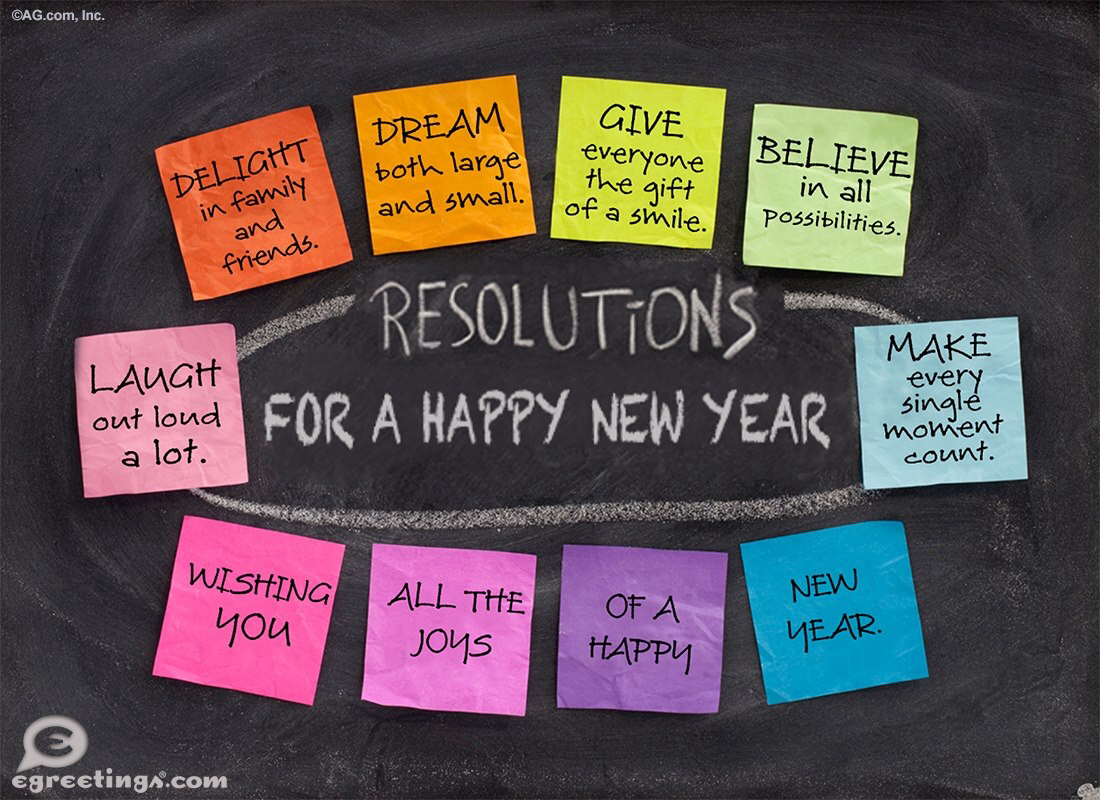 ©AG.com, Inc.
DELIGHT
in family
and
friends.
DREAM
both large
and small.
GIVE
everyone
the gift
of a smile.
BELIEVE
in all
possibilities.
LAUGH
out loud
a lot.
RESOLUTiONS
FOR A HAPPY NEW YEAR
MAKE
every
single
moment
count.
WISHING
YOU
ALL THE
JOYS
OF A
HAPPY
NEW
YEAR.
egreetings.com